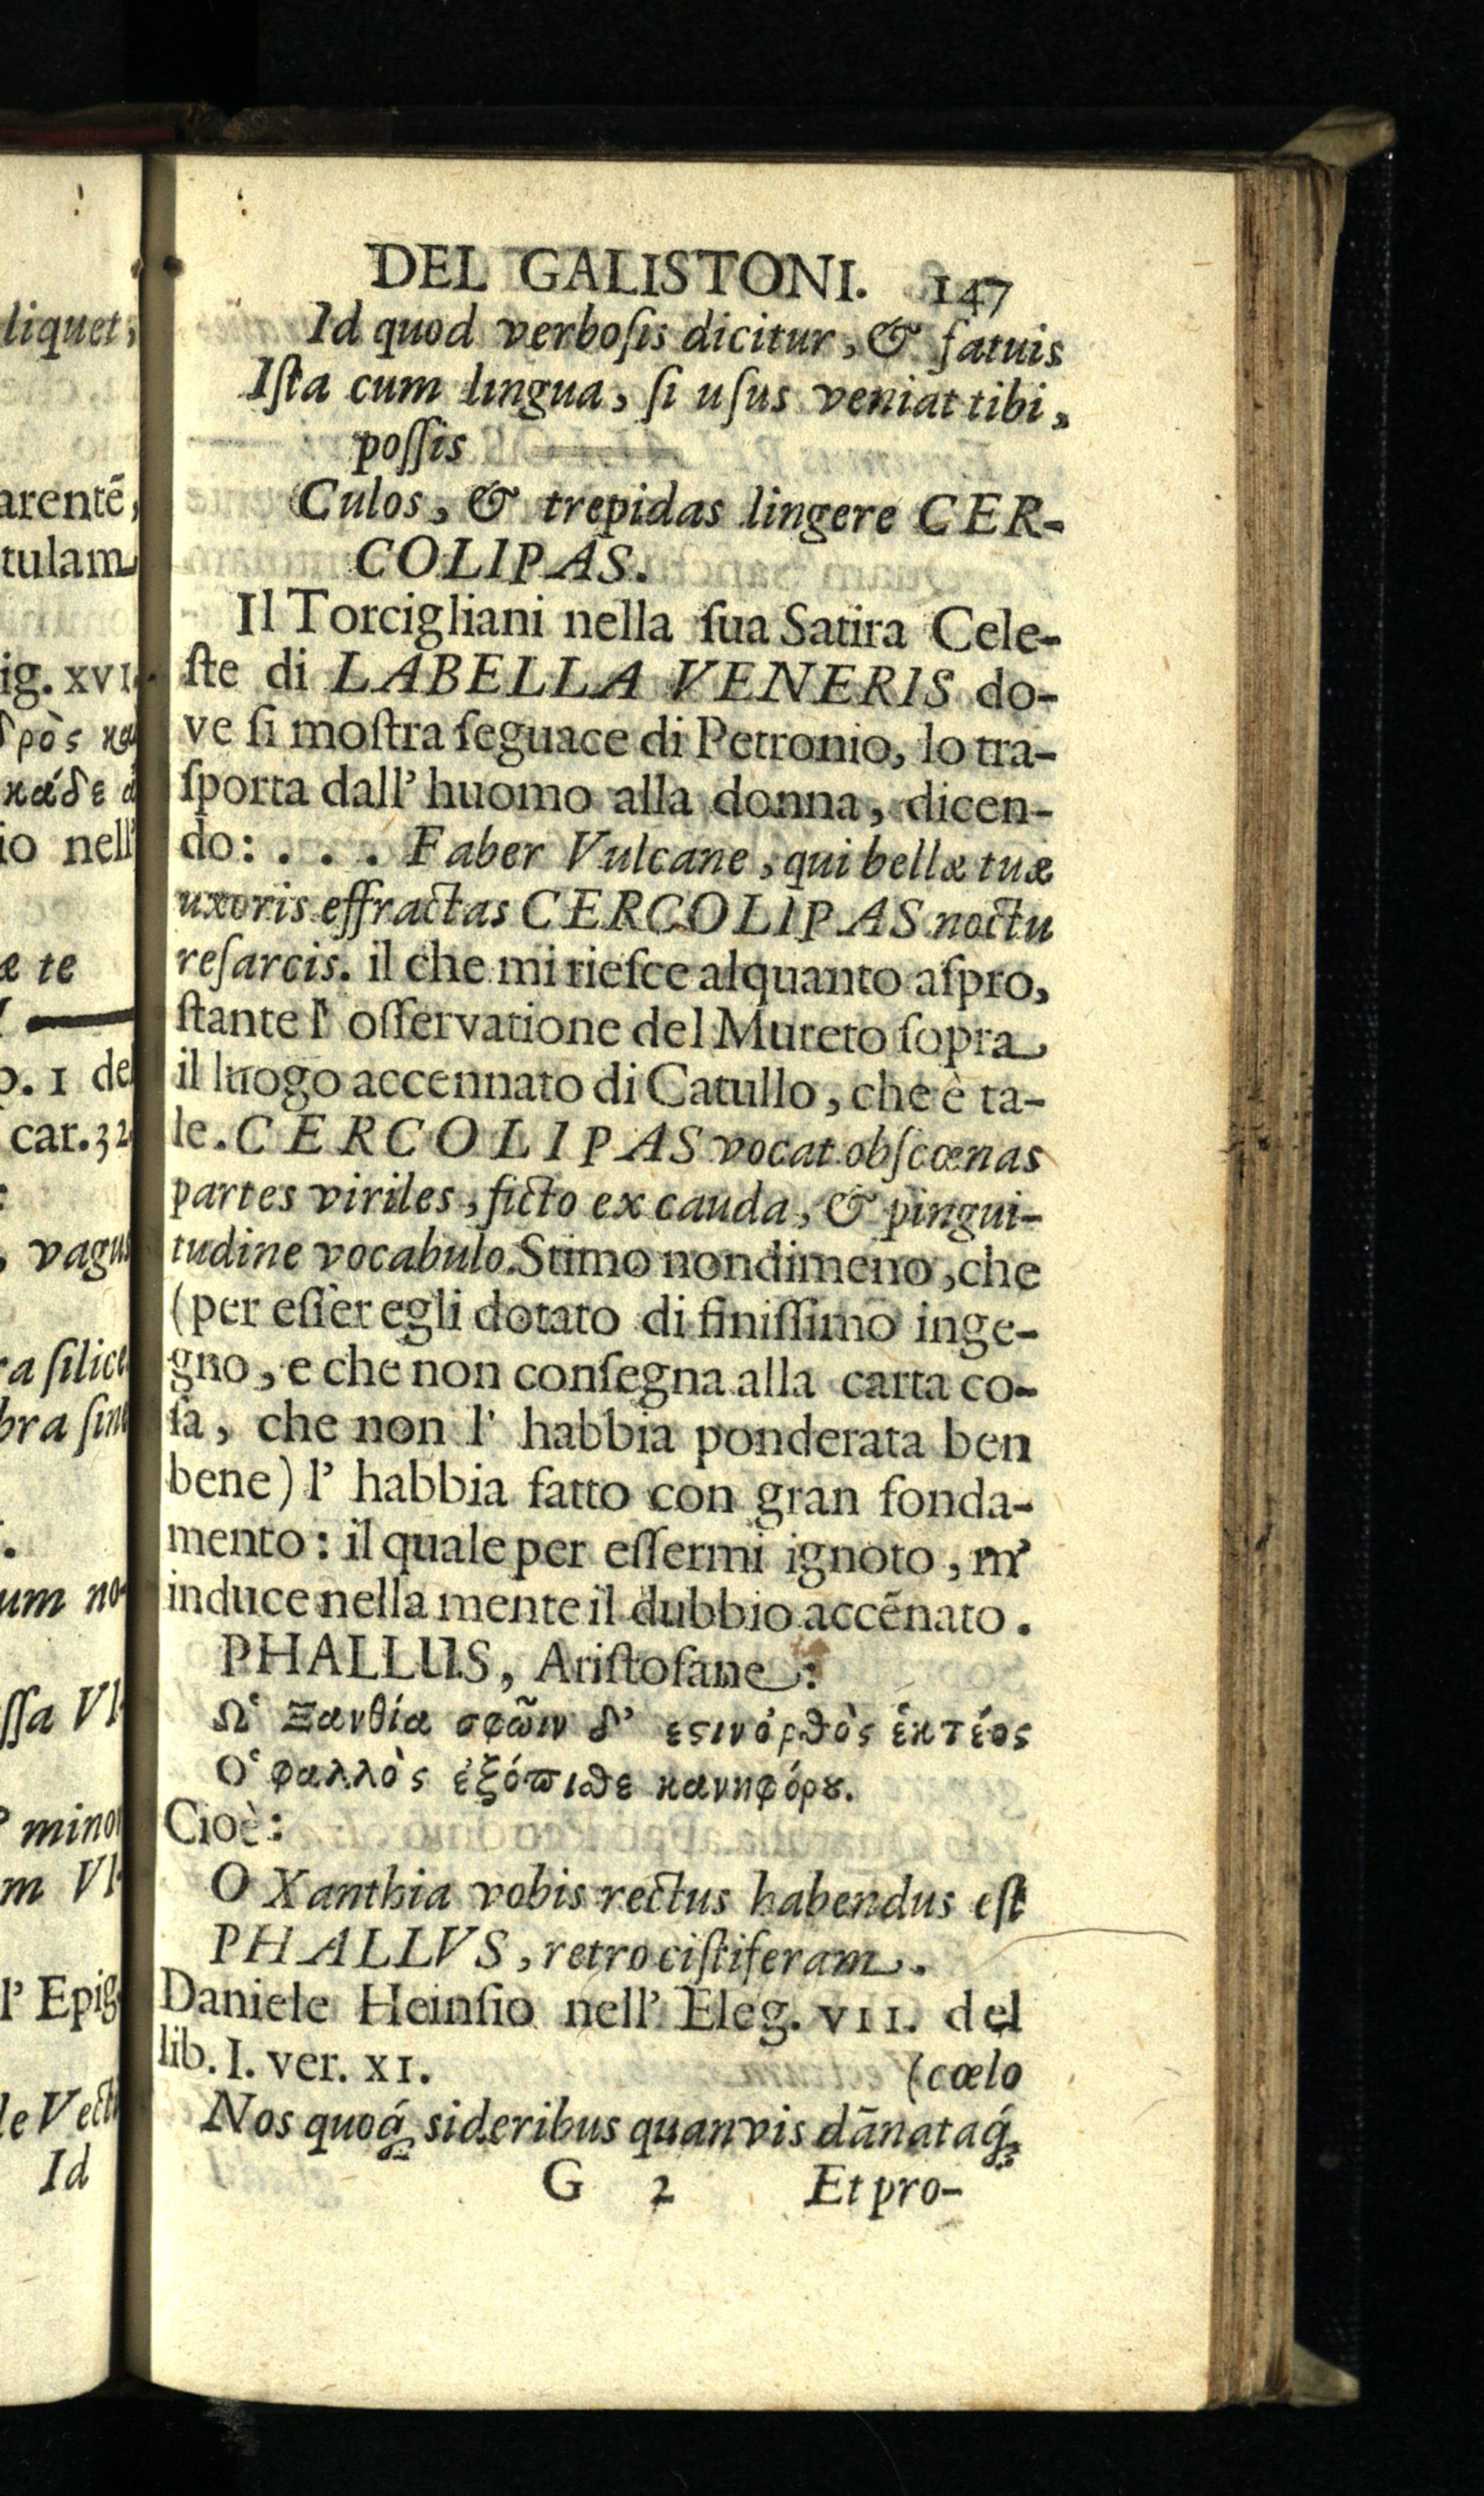 DEL GALISTONI. 147
Id quod verboſis dicitur, & fatuis
Iſta cum lingua, ſi uſus veniat tibi,
poſſis
Culos, & trepidas lingere CER-
COLIPAS.
Il Torcigliani nella ſua Satira Cele-
ſte di LABELLA VENERIS do-
ve ſi moſtra ſeguace di Petronio, lo tra-
ſporta dall' huomo alla donna, dicen-
do: . . . Faber Vulcane, qui bellæ tuæ
uxoris effractas CERCOLIPAS noctu
reſarcis. il che mi rieſce alquanto aſpro,
ſtante l' oſſervatione del Mureto ſopra
il luogo accennato di Catullo, che è ta-
le. CERCOLIPAS vocat obſcœnas
partes viriles, ficto ex cauda, & pingui-
tudine vocabulo. Stimo nondimeno, che
(per eſſer egli dotato di finiſſimo inge-
gno, e che non conſegna alla carta co-
ſa, che non l' habbia ponderata ben
bene) l' habbia fatto con gran fonda-
mento: il quale per eſſermi ignoto, m'
induce nella mente il dubbio accēnato.
PHALLUS, Ariſtofane:
Ω῾ Ξανθία σφῶιν δ' εϛινόρθὸς ἑκτέος
Ο῾ φαλλὸς ἐξόπιϑε κανηφόρȣ.
Cioè:
O Xanthia vobis rectus habendus eſt
PHALLVS, retro ciſtiferam.
Daniele Heinſio nell' Eleg. VII. del
lib. I. ver. XI. (cœlo
Nos quoq́; sideribus quanvis dānataq́;
G 2 Et pro-
liquet,
arentē,
tulam
ig. XVI.
io nell'
æ te
p. 1 del
car. 32
, vagus
ra ſilice
bra ſine
um no-
ſſa Vl-
minor
m Vl-
l' Epig.
le Vect
Id